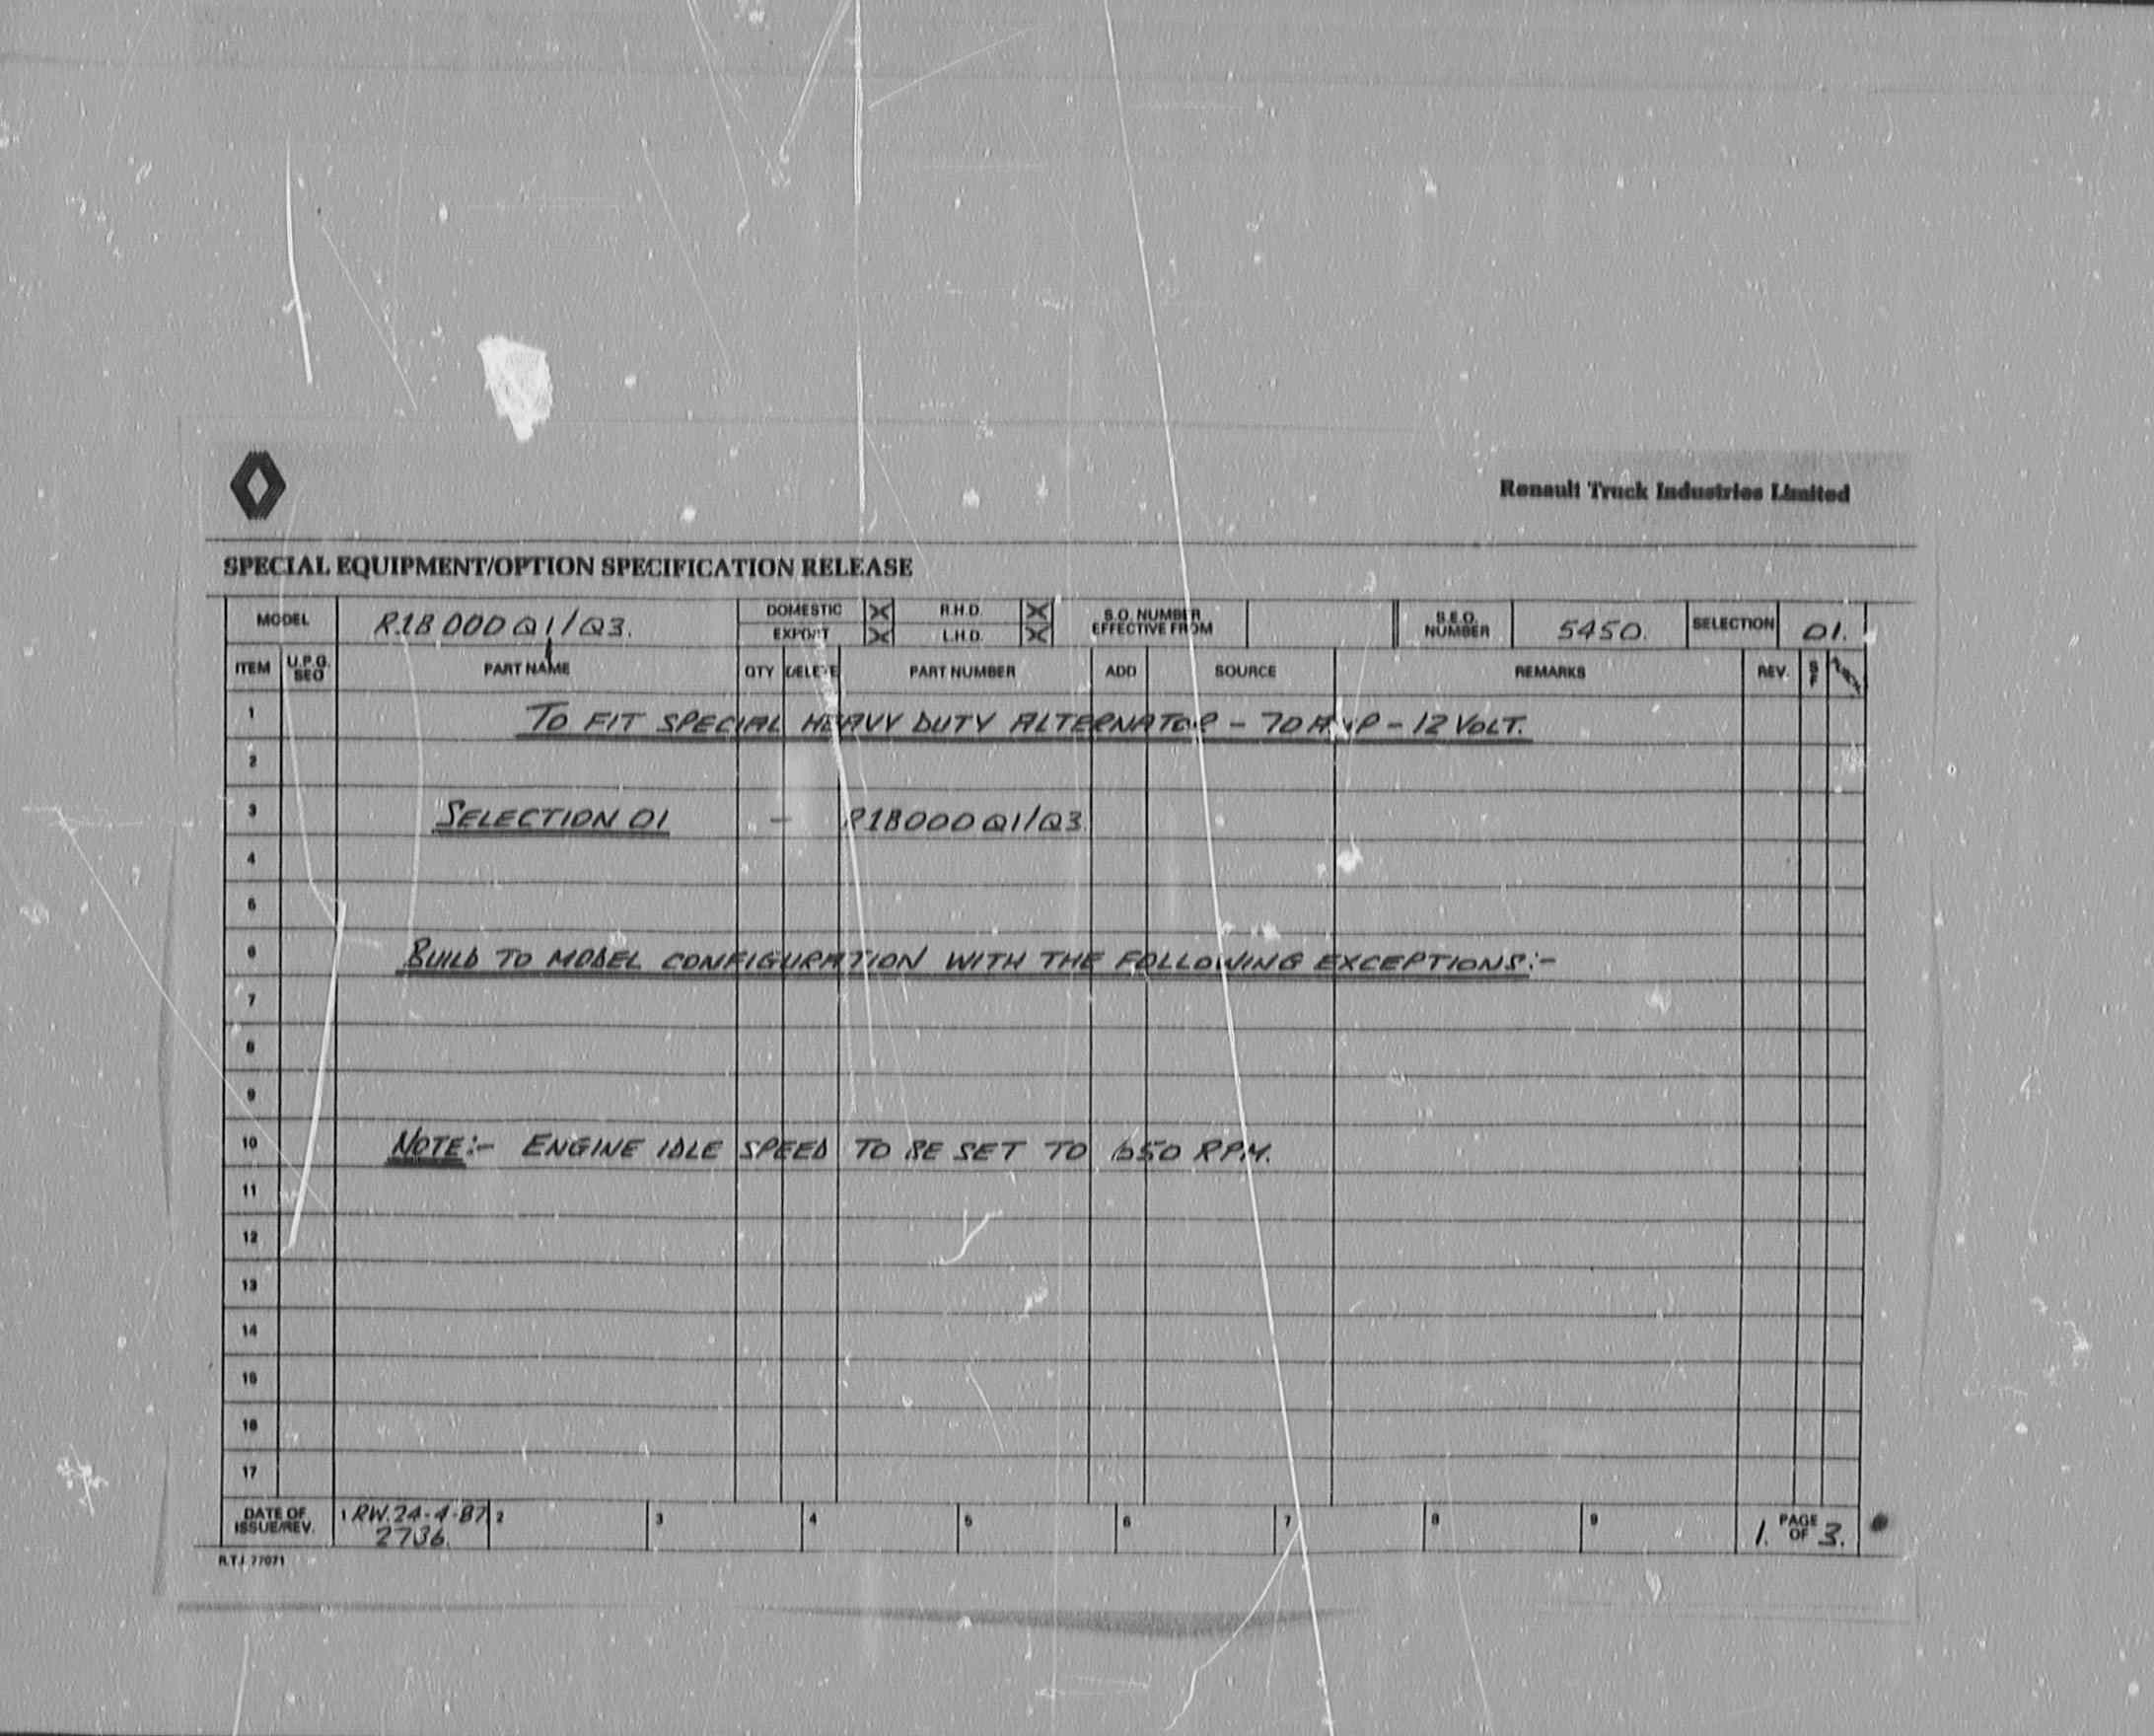 Renault Truck Industries Limited
SPECIAL EQUIPMENT/OPTION SPECIFICATION RELEASE
MODEL R1B000Q1/Q3. DOMESTIC X R.H.D. X S.O. NUMBER EFFECTIVE FROM S.E.O. NUMBER 5450. SELECTION 01.
EXPORT X L.H.D. X
ITEM U.P.G. SEQ PART NAME QTY DELETE PART NUMBER ADD SOURCE REMARKS REV.
1 TO FIT SPECIAL HEAVY DUTY ALTERNATOR - 70 AMP - 12 VOLT.
2
3 SELECTION 01 - R1B000Q1/Q3
4
5
6 BUILD TO MODEL CONFIGURATION WITH THE FOLLOWING EXCEPTIONS:-
7
8
9
10 NOTE:- ENGINE IDLE SPEED TO BE SET TO 650 RPM.
11
12
13
14
15
16
17
DATE OF ISSUE/REV. 1 RW. 24-4-87 2 3 4 5 6 7 8 9 1. PAGE OF 3.
2736.
R.T.I. 77071